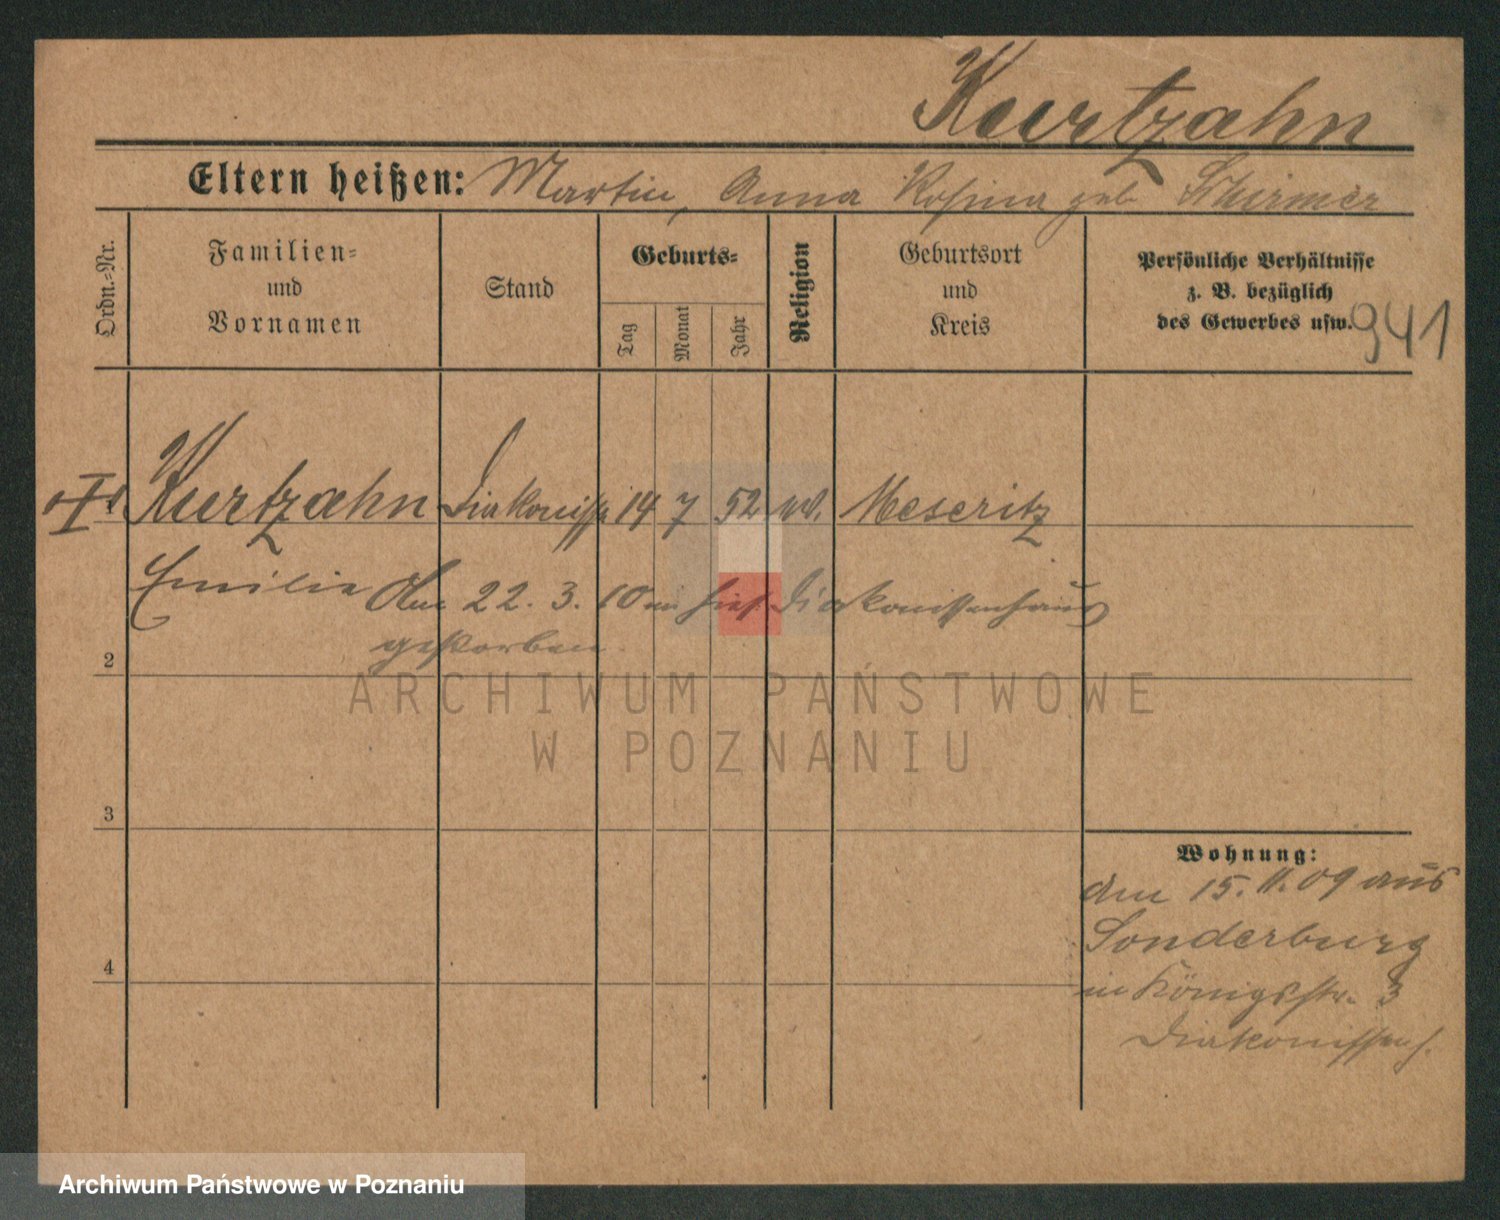 Kurtzahn
Eltern heißen: Martin, Anna Rosina geb Schirmer
Ordn.-Nr.
Familien-
und
Vornamen
Stand
Geburts-
Tag
Monat
Jahr
Religion
Geburtsort
und
Kreis
Persönliche Verhältnisse
z. B. bezüglich
des Gewerbes usw.
941
Kurtzahn Diakonisse 14 7 52 ev. Meseritz
Emilie Am 22. 3. 10 im hies. Diakonissenhaus
gestorben.
2
3
4
Wohnung:
am 15. 11. 09 aus
Sonderburg
in Königsstr. 3
Diakonissenh.
ARCHIWUM PAŃSTWOWE
W POZNANIU
Archiwum Państwowe w Poznaniu